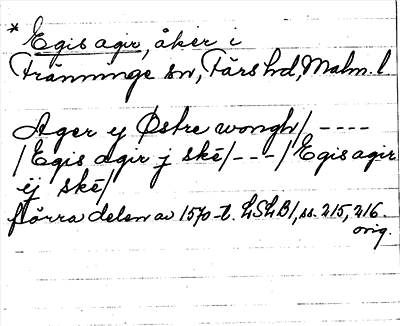 * Egis agir, åker i
Tränninge sn, Färs hd, Malm. l
Ager ij Østre wongh/ ----
/Egis agir j ské/---/Egis agir
ij ské/
förra delen av 1570-t. LSLB1, ss. 215, 216.
orig.